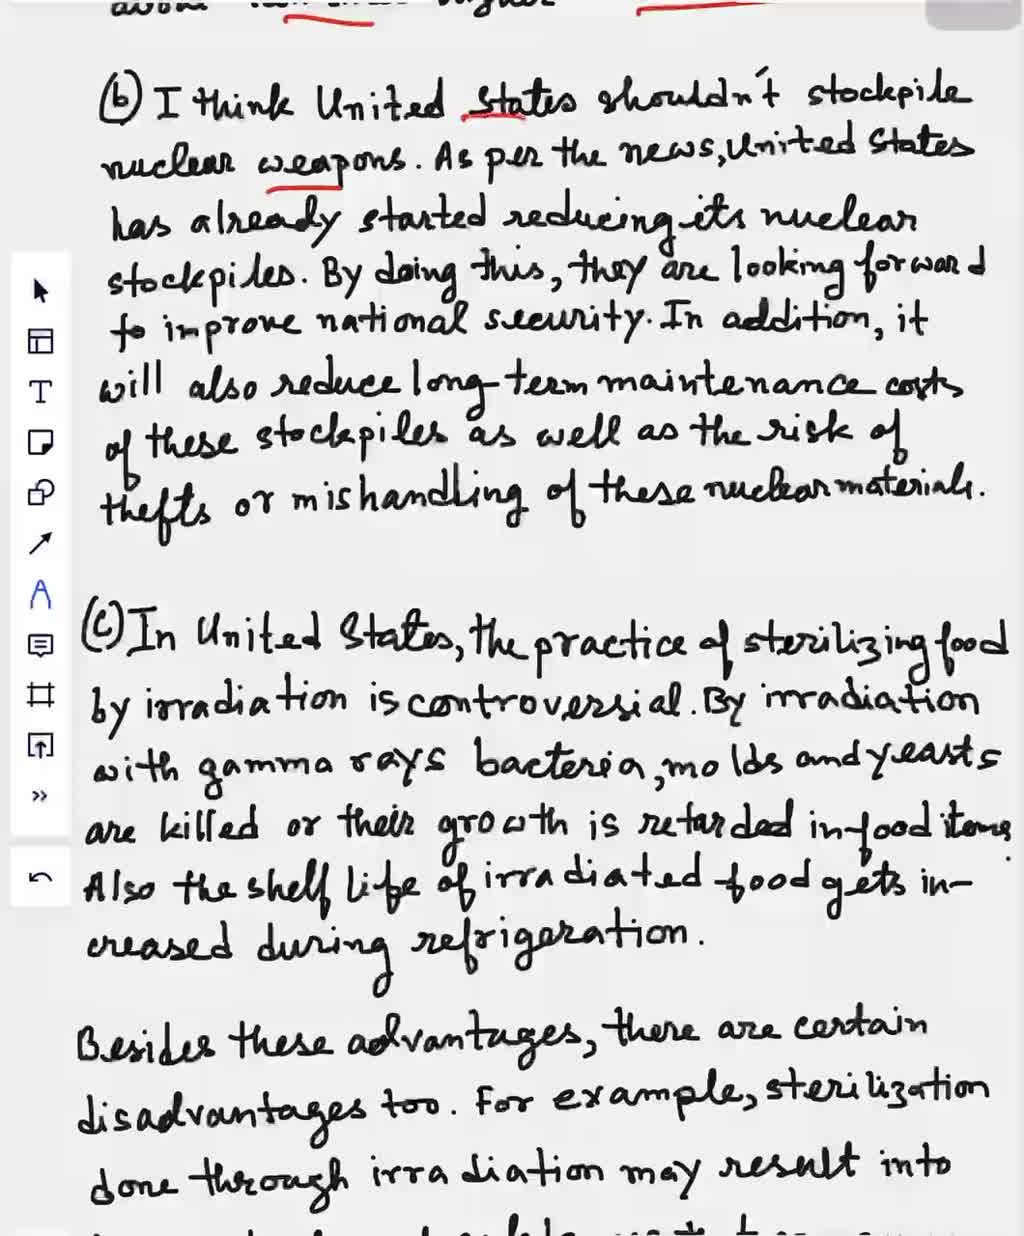 (b) I think United States shouldn't stockpile
nuclear weapons. As per the news, United States
has already started reducing its nuclear
stockpiles. By doing this, they are looking forward
to improve national security. In addition, it
will also reduce long-term maintenance costs
of these stockpiles as well as the risk of
thefts or mishandling of these nuclear materials.
(c) In United States, the practice of sterilizing food
by irradiation is controversial. By irradiation
with gamma rays bacteria, molds and yeasts
are killed or their growth is retarded in food items.
Also the shelf life of irradiated food gets in-
creased during refrigeration.
Besides these advantages, there are certain
disadvantages too. For example, sterilization
done through irradiation may result into